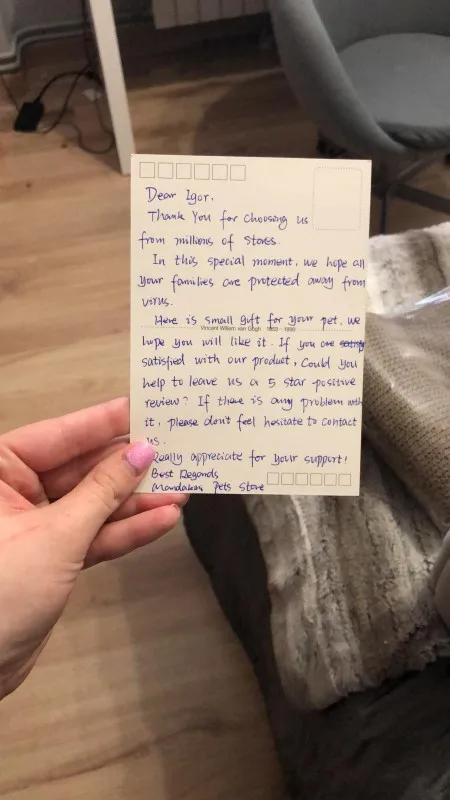 Dear Igor,
Thank You for choosing us
from millions of stores.
In this special moment, we hope all
your families are protected away from
virus.
Here is small gift for your pet, we
Vincent Willem van Gogh 1853 - 1890
hope you will like it. If you are satisfy
satisfied with our product, Could you
help to leave us a 5 star positive
review? If there is any problem with
it, please don't feel hesitate to contact
us.
Really appreciate for your support!
Best Regards
Pets Store